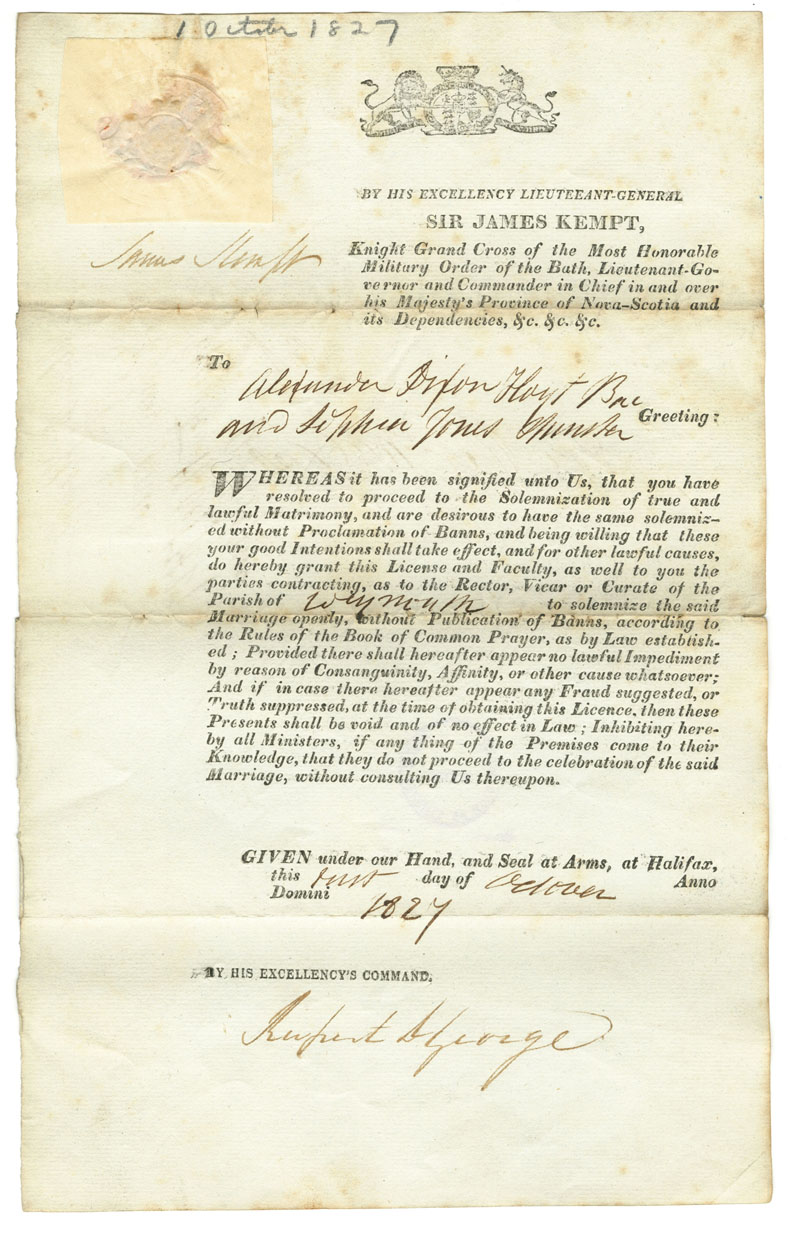 1 October 1827
BY HIS EXCELLENCY LIEUTEEANT-GENERAL
SIR JAMES KEMPT,
James Kempt
Knight Grand Cross of the Most Honorable
Military Order of the Bath, Lieutenant-Go-
vernor and Commander in Chief in and over
his Majesty's Province of Nova-Scotia and
its Dependencies, &c. &c. &c.
To
Alexander Dixon Hoyt Bac
and Sephia Jones Spinster Greeting:
WHEREAS it has been signified unto Us, that you have
resolved to proceed to the Solemnization of true and
lawful Matrimony, and are desirous to have the same solemniz-
ed without Proclamation of Banns, and being willing that these
your good Intentions shall take effect, and for other lawful causes,
do hereby grant this License and Faculty, as well to you the
parties contracting, as to the Rector, Vicar or Curate of the
Parish of Weymouth to solemnize the said
Marriage openly, without Publication of Banns, according to
the Rules of the Book of Common Prayer, as by Law establish-
ed ; Provided there shall hereafter appear no lawful Impediment
by reason of Consanguinity, Affinity, or other cause whatsoever;
And if in case there hereafter appear any Fraud suggested, or
Truth suppressed, at the time of obtaining this Licence, then these
Presents shall be void and of no effect in Law ; Inhibiting here-
by all Ministers, if any thing of the Premises come to their
Knowledge, that they do not proceed to the celebration of the said
Marriage, without consulting Us thereupon.
GIVEN under our Hand, and Seal at Arms, at Halifax,
this first day of October Anno
Domini 1827
BY HIS EXCELLENCY'S COMMAND,
Rupert D George